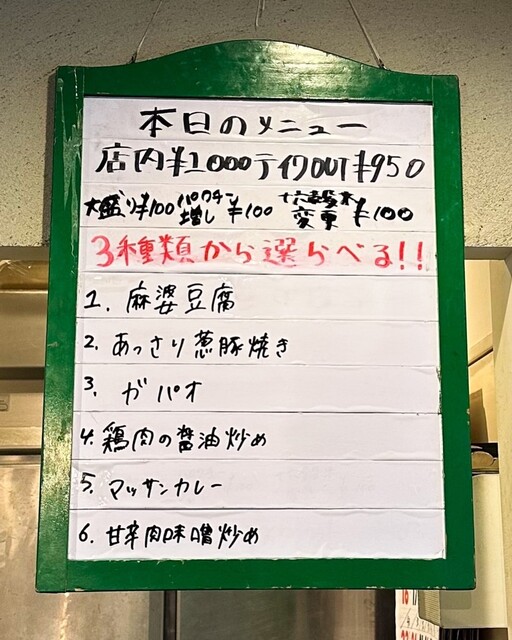 本日のメニュー
店内¥1000 テイクOUT ¥950
大盛り¥100 パクチー増し ¥100 十六穀米変更 ¥100
3種類から選らべる!!
1. 麻婆豆腐
2. あっさり葱豚焼き
3. ガパオ
4. 鶏肉の醤油炒め
5. マッサンカレー
6. 甘辛肉味噌炒め